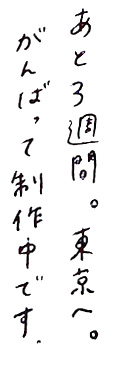 あと3週間。東京へ。
がんばって制作中です.